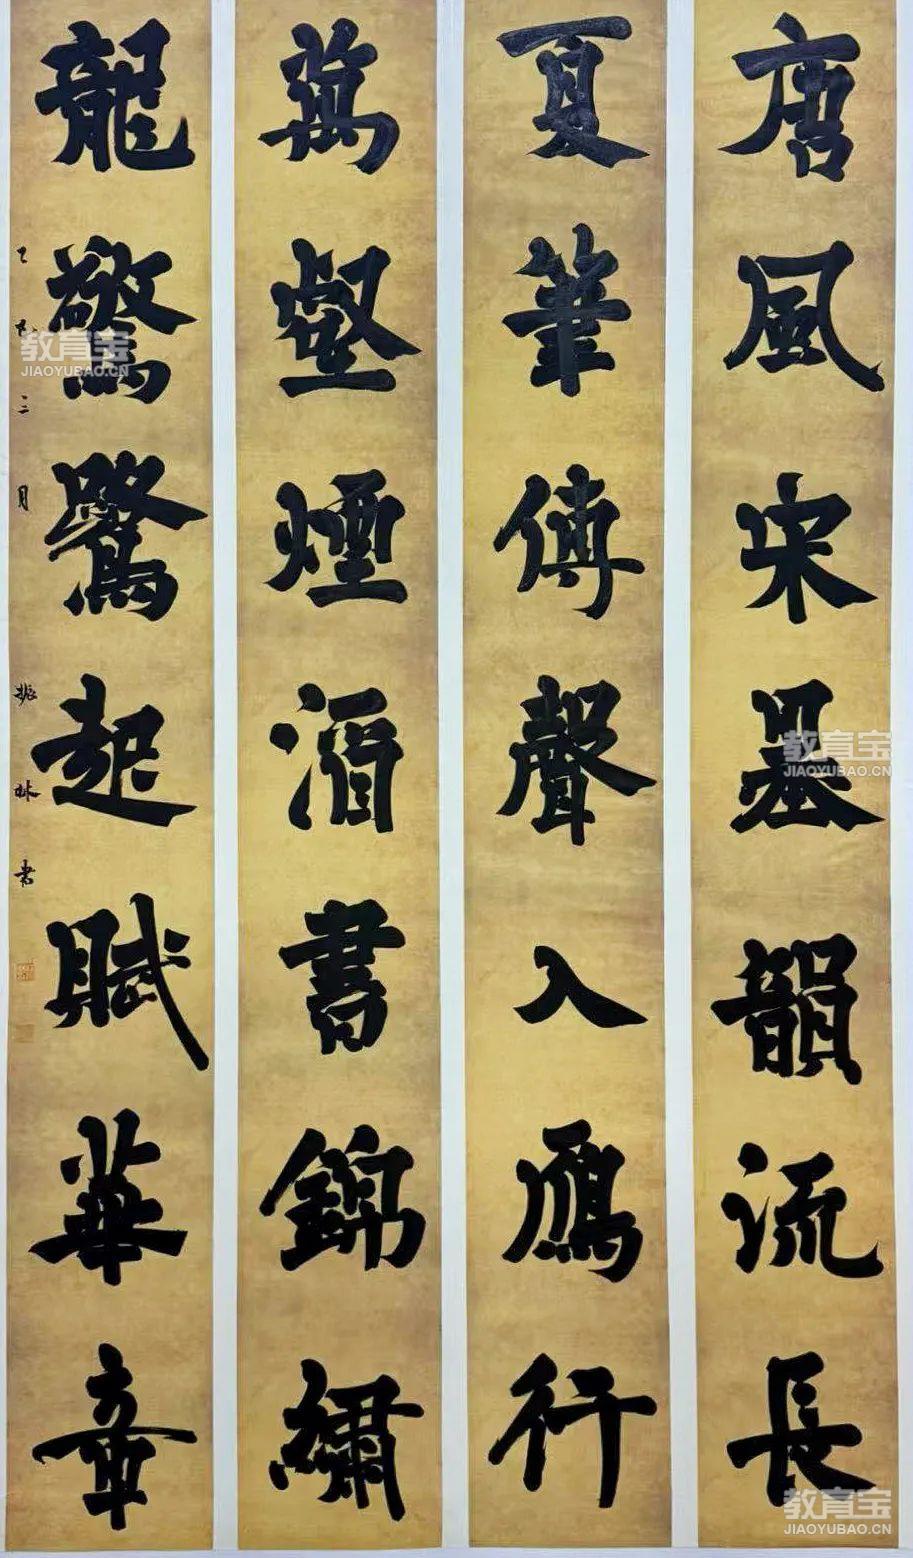 唐風宋墨韻流長
夏筆傳聲入鴈行
萬壑煙書錦繡
龍驚鷺起賦華章
乙巳三月 振林書
教育宝
JIAOYUBAO.CN
教育宝
JIAOYUBAO.CN
教育宝
JIAOYUBAO.CN